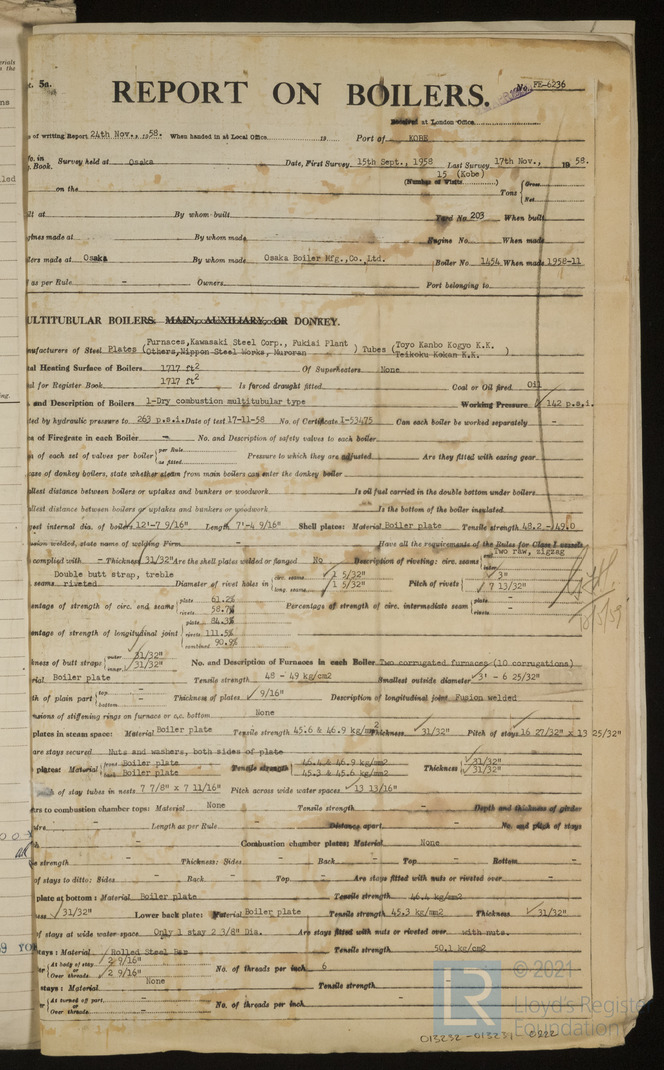 5a.
REPORT ON BOILERS.
No. FE-6236
Received at London Office
of writing Report 24th Nov., 1958. When handed in at Local Office 19 Port of KOBE
No. in Book. Survey held at Osaka Date, First Survey 15th Sept., 1958 Last Survey 17th Nov., 1958.
15 (Kobe)
(Number of Visits)
on the Tons { Gross Net
built at By whom built Yard No. 203 When built
Engines made at By whom made Engine No. When made
Boilers made at Osaka By whom made Osaka Boiler Mfg.,Co.,Ltd. Boiler No. 1454 When made 1958-11
as per Rule - Owners Port belonging to
MULTITUBULAR BOILERS. MAIN, AUXILIARY, OR DONKEY.
Manufacturers of Steel Plates (Furnaces,Kawasaki Steel Corp., Fukiai Plant Others,Nippon Steel Works, Muroran) Tubes (Toyo Kanbo Kogyo K.K. Teikoku Kokan K.K.)
Total Heating Surface of Boilers 1717 ft2 Of Superheaters None
for Register Book. 1717 ft2 Is forced draught fitted Coal or Oil fired Oil
and Description of Boilers 1-Dry combustion multitubular type Working Pressure 142 p.s.i.
tested by hydraulic pressure to 263 p.s.i. Date of test 17-11-58 No. of Certificate I-53475 Can each boiler be worked separately -
Area of Firegrate in each Boiler - No. and Description of safety valves to each boiler
of each set of valves per boiler { per Rule as fitted Pressure to which they are adjusted Are they fitted with easing gear
case of donkey boilers, state whether steam from main boilers can enter the donkey boiler
smallest distance between boilers or uptakes and bunkers or woodwork Is oil fuel carried in the double bottom under boilers
smallest distance between boilers or uptakes and bunkers or woodwork Is the bottom of the boiler insulated
Largest internal dia. of boilers 12'-7 9/16" Length 7'-4 9/16" Shell plates: Material Boiler plate Tensile strength 48.2 - 49.0
fusion welded, state name of welding Firm Have all the requirements of the Rules for Class I vessels
complied with - Thickness 31/32" Are the shell plates welded or flanged No Description of riveting: circ. seams { Two raw, zigzag
seams Double butt strap, treble riveted Diameter of rivet holes in { circ. seams 1 5/32" long. seams 1 5/32" Pitch of rivets { 3" 7 13/32"
Percentage of strength of circ. end seams { plate 61.2% rivets 58.7% Percentage of strength of circ. intermediate seam { plate - rivets -
Percentage of strength of longitudinal joint { plate 84.3% rivets 111.5% combined 90.9%
Thickness of butt straps { outer 31/32" inner 31/32" No. and Description of Furnaces in each Boiler Two corrugated furnaces (10 corrugations)
Material Boiler plate Tensile strength 48 - 49 kg/cm2 Smallest outside diameter 3' - 6 25/32"
Length of plain part { top - bottom - Thickness of plates 9/16" Description of longitudinal joint Fusion welded
Dimensions of stiffening rings on furnace or c.c. bottom None
plates in steam space: Material Boiler plate Tensile strength 45.6 & 46.9 kg/mm2 Thickness 31/32" Pitch of stays 16 27/32" x 13 25/32"
are stays secured Nuts and washers, both sides of plate
plates: Material { front Boiler plate back Boiler plate Tensile strength { 46.4 & 46.9 kg/mm2 45.3 & 45.6 kg/mm2 Thickness { 31/32" 31/32"
of stay tubes in nests 7 7/8" x 7 11/16" Pitch across wide water spaces 13 13/16"
Girders to combustion chamber tops: Material None Tensile strength - Depth and thickness of girder
centre - Length as per Rule - Distance apart - No. and pitch of stays
- Combustion chamber plates: Material None
Tensile strength - Thickness: Sides - Back - Top - Bottom -
of stays to ditto: Sides - Back - Top - Are stays fitted with nuts or riveted over -
plate at bottom: Material Boiler plate Tensile strength 46.4 kg/mm2
31/32" Lower back plate: Material Boiler plate Tensile strength 45.3 kg/mm2 Thickness 31/32"
of stays at wide water space Only 1 stay 2 3/8" Dia. Are stays fitted with nuts or riveted over with nuts.
stays: Material Rolled Steel Bar Tensile strength 50.1 kg/cm2
{ At body of stay 2 9/16" or Over threads 2 9/16" No. of threads per inch 6
stays: Material None Tensile strength -
{ At turned off part - or Over threads - No. of threads per inch -
LR © 2021 Lloyd's Register Foundation
013232 - 013231 0222